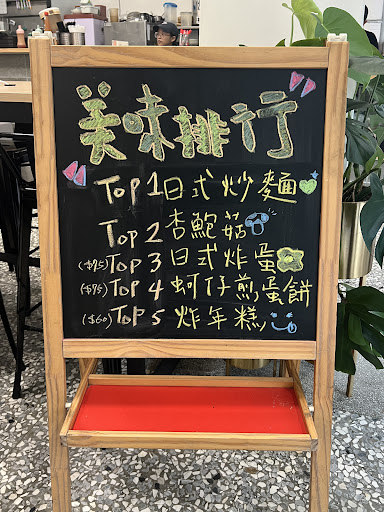 美味排行
Top 1 日式炒麵
Top 2 杏鮑菇
($95) Top 3 日式炸蛋
($95) Top 4 蚵仔煎蛋餅
($60) Top 5 炸年糕